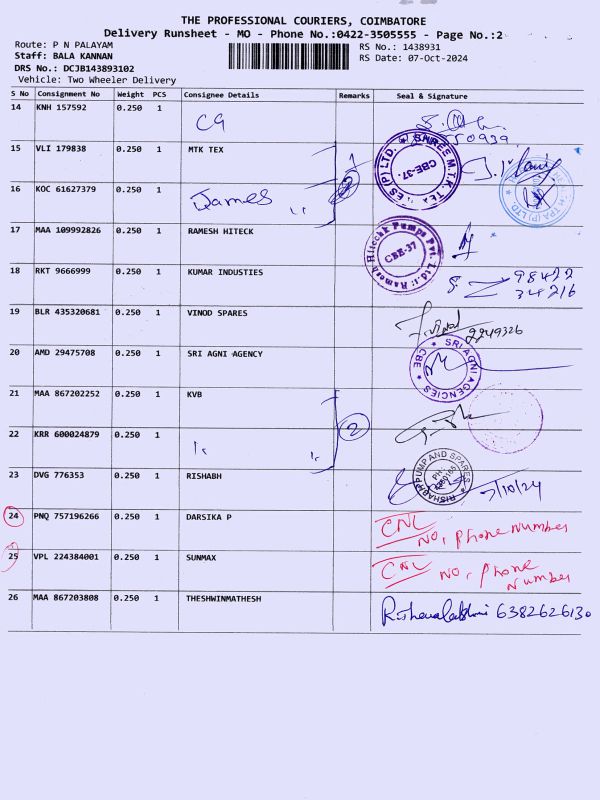 THE PROFESSIONAL COURIERS, COIMBATORE
Delivery Runsheet - MO - Phone No.:0422-3505555 - Page No.:2
Route: P N PALAYAM
RS No.: 1438931
Staff: BALA KANNAN
RS Date: 07-Oct-2024
DRS No.: DCJB143893102
Vehicle: Two Wheeler Delivery
S No Consignment No Weight PCS Consignee Details Remarks Seal & Signature
14 KNH 157592 0.250 1 CG
50939
15 VLI 179838 0.250 1 MTK TEX
SHREE M.T.K. TEX (P) LTD. CBE-37.
16 KOC 61627379 0.250 1 James ,,
17 MAA 109992826 0.250 1 RAMESH HITECK
Ramesh Hiteck Pumps Pvt. Ltd. CBE-37
18 RKT 9666999 0.250 1 KUMAR INDUSTIES 98422
34216
19 BLR 435320681 0.250 1 VINOD SPARES
2249326
20 AMD 29475708 0.250 1 SRI AGNI AGENCY
SRI AGNI AGENCIES CBE
21 MAA 867202252 0.250 1 KVB
2
22 KRR 600024879 0.250 1 ,, ,,
23 DVG 776353 0.250 1 RISHABH 7/10/24
RISHABH PUMP AND SPARES
24 PNQ 757196266 0.250 1 DARSIKA P CNL
No, phone number
25 VPL 224384001 0.250 1 SUNMAX CNL No, phone
number
26 MAA 867203808 0.250 1 THESHWINMATHESH 6382626130